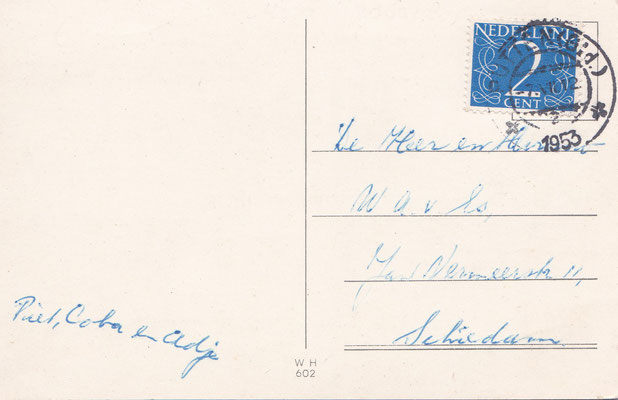 NEDERLAND
2
CENT
1953
De Heer en
W a. v Es,
Jan Vermeerstr 11,
Schiedam
Piet, Coba en Adje
W H
602